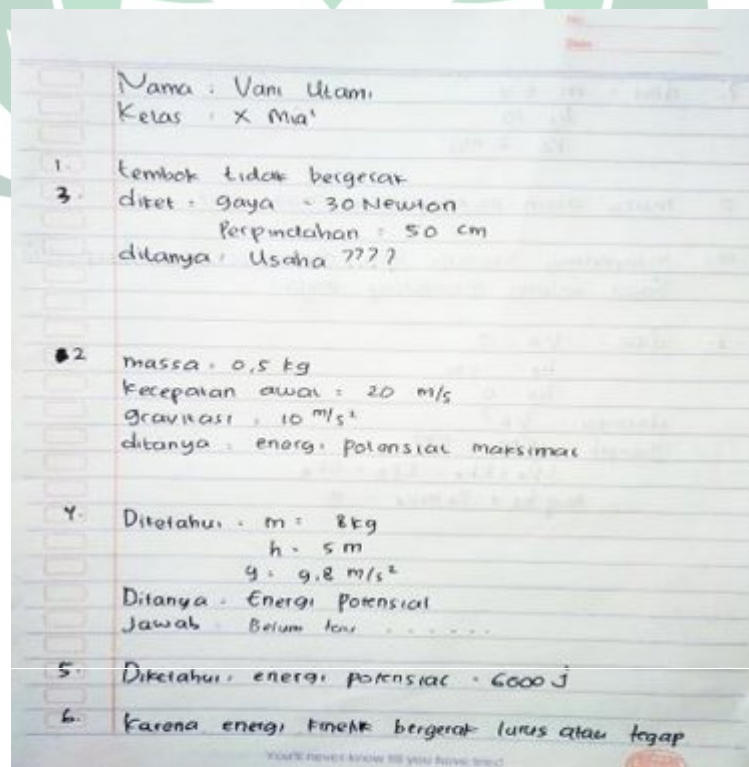 No.
Date
Nama : Vani Utami
Kelas : X Mia'
1. tembok tidak bergerak
3. diket : gaya = 30 Newton
Perpindahan : 50 cm
ditanya : Usaha ????
2 massa : 0,5 kg
kecepatan awal : 20 m/s
gravitasi : 10 m/s²
ditanya : energi potansial maksimal
4. Diketahui : m = 8kg
h = 5 m
g = 9,8 m/s²
Ditanya : Energi Potensial
Jawab Belum ......
5. Diketahui : energi potensial = 6000 J
6. Karena energi kinetik bergerak lurus atau tegap
You'll never know till you have tried